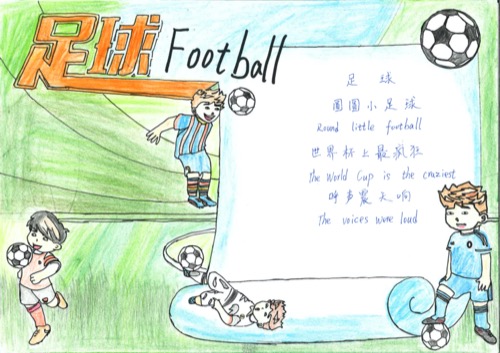 足球 Football
足 球
圆圆小足球
Round little football
世界杯上最疯狂
the World Cup is the craziest
呼声震天响
The voices were loud